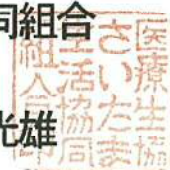 同組合
光雄
医療生協
さいたま
生活協同
組合